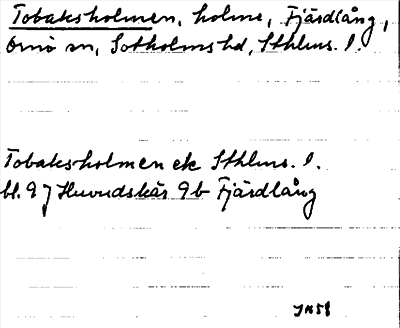 Tobaksholmen, holme, Fjärdlång,
Ornö sn, Sotholms hd, Sthlms. l.
Tobaksholmen ek Sthlms. l.
bl. 97 Huvudskär 9b Fjärdlång
JN58